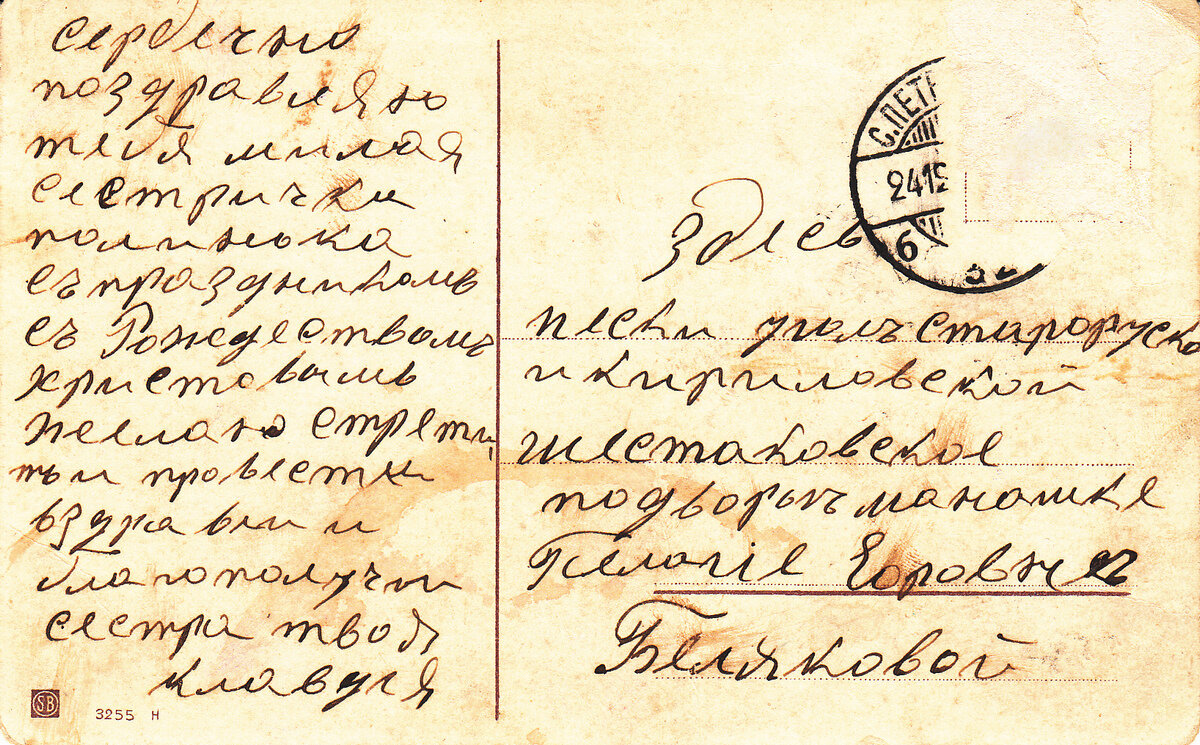 сердечно
поздравляю
тебя милая
сестричка
полинька
съ праздникомъ
съ Рождествомъ
христовымъ
желаю стрети
ть и провести
вздравии и
благополучии
сестра твоя
клавдия
SB
3255 H
С.ПЕТ
24 12
6
Здесь
пески уголъ старорусско
и кириловской
шестаковское
подворье манашке
Пелагiе Егоровне
Беляковой